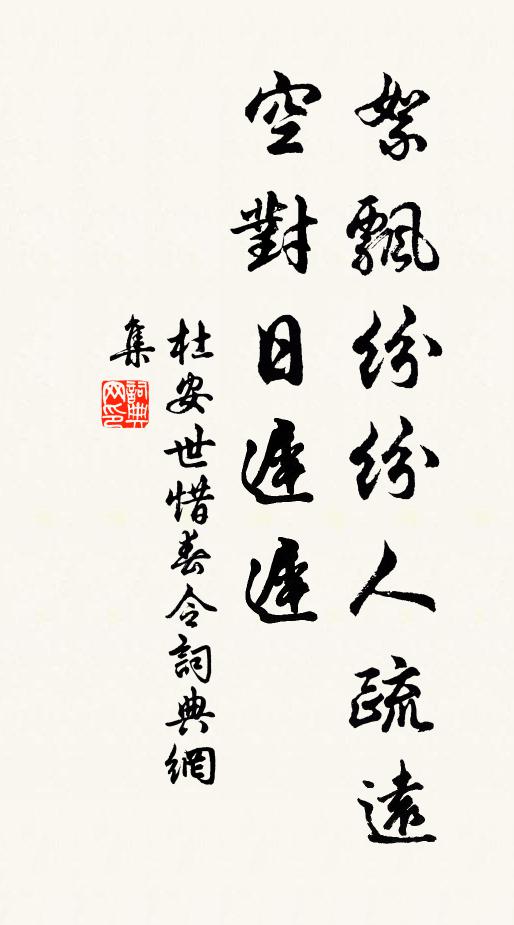 絮飄紛紛人疏遠
空對日遲遲
杜安世惜春令詞典網
集
詞典
網印